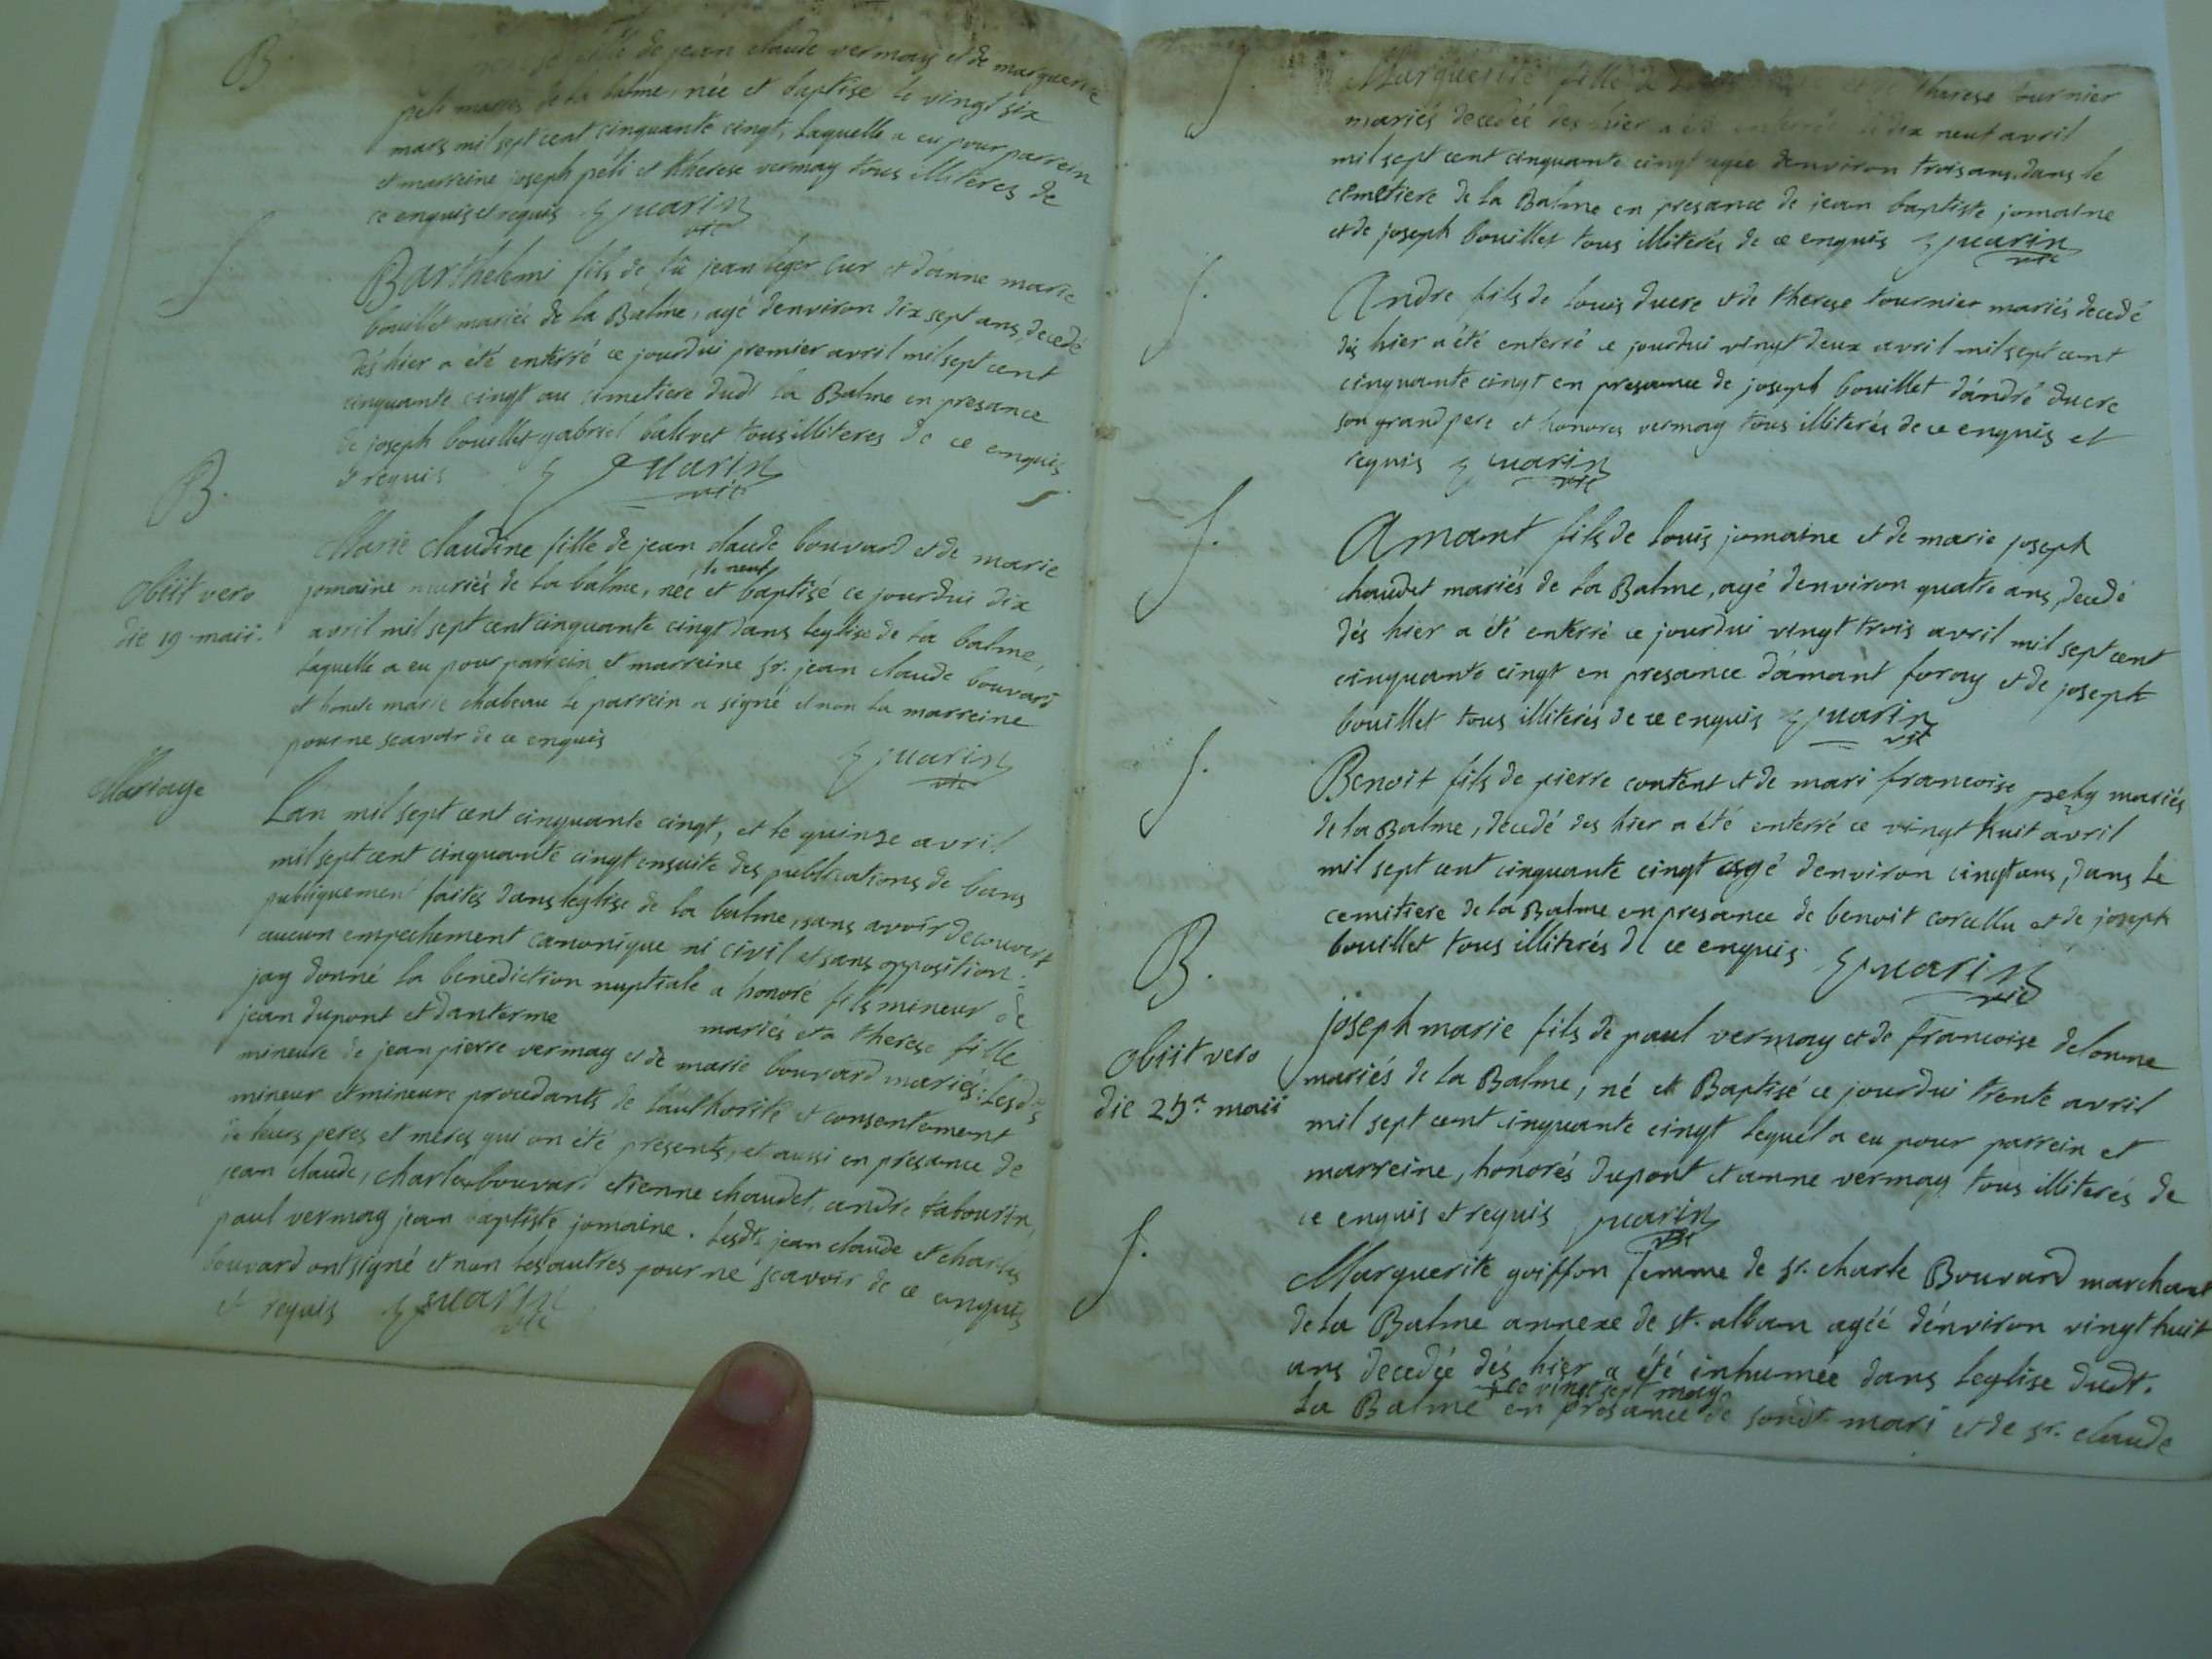 B.
fille de jean claude vermay et de marguerite
peli mariés de la balme, née et baptisé le vingt six
mars mil sept cent cinquante cingt, laquelle a eu pour parrein
et marreine joseph peli et therese vermay tous illiteres de
ce enquis et requis juarin
vic
f
Barthelemi fils de fû jean leger cur et d'anne marie
bouillet mariés de la Balme, agé denviron dix sept ans, decedé
dés hier a été enterré ce jourdui premier avril mil sept cent
cinquante cingt au cimetiere dudt la Balme en presance
de joseph bouillet gabriel balivet tous illiteres de ce enquis
et requis juarin
vic
B.
Marie claudine fille de jean claude bouvard et de marie
le neuf
jomaine mariés de la balme, née et baptisé ce jourdui dix
obiit vero
die 19 maii.
avril mil sept cent cinquante cingt dans leglise de la balme,
laquelle a eu pour parrein et marreine sr. jean claude bouvard
et honete marie chabeau le parrein a signé et non la marreine
pour ne scavoir de ce enquis
juarin
vic
Mariage
Lan mil sept cent cinquante cingt, et le quinze avril
mil sept cent cinquante cingt ensuite des publications de bans
publiquement faites dans leglise de la balme, sans avoir decouvert
aucun empechement canonique ni civil et sans opposition:
jay donné la benediction nuptiale a honoré fils mineur de
jean dupont et d'anterme mariés et a therese fille
mineure de jean pierre vermay et de marie bouvard mariés: Lesdts
mineur et mineure procedants de l'authorité et consentement
de leurs peres et meres qui on été presents, et aussi en presance de
jean claude, charles bouvard etienne chaudet, andre tabourin,
paul vermay jean baptiste jomaine. Lesdts jean claude et charles
bouvard ont signé et non les autres pour ne scavoir de ce enquis
et requis juarin
vic
f.
Marguerite fille de therese tournier
mariés decedée des hier a été enterrée le dix neuf avril
mil sept cent cinquante cingt agée denviron trois ans, dans le
cemetiere de la Balme en presance de jean baptiste jomaine
et de joseph bouillet tous illiterés de ce enquis juarin
vic
f.
Andre fils de louis ducre et de therese tournier mariés decedé
dés hier a été enterré ce jourdui vingt deux avril mil sept cent
cinquante cingt en presance de joseph bouillet d'andré ducre
son grand pere et honores vermay tous illiterés de ce enquis et
requis juarin
vic
f.
Amant fils de louis jomaine et de marie joseph
chaudet mariés de la Balme, agé denviron quatre ans, decedé
dés hier a été enterré ce jourdui vingt trois avril mil sept cent
cinquante cingt en presance d'amant foray et de joseph
bouillet tous illiterés de ce enquis juarin
vic
f.
Benoit fils de pierre content et de mari francoise pely mariés
de la Balme, decedé des hier a été enterré ce vingt huit avril
mil sept cent cinquante cingt agé denviron cingt ans, dans le
cemitiere de la Balme en presance de benoit corcellu et de joseph
bouillet tous illiterés de ce enquis. juarin
vic
B.
joseph marie fils de paul vermay et de francoise delonne
obiit vero
die 25a maii
mariés de la Balme, né et Baptisé ce jourdui trente avril
mil sept cent cinquante cingt lequel a eu pour parrein et
marreine, honorés dupont et anne vermay tous illiterés de
ce enquis et requis juarin
vic
f.
Marguerite goiffon femme de sr. charle Bouvard marchant
de la Balme annexe de st. alban agéé dénviron vingt huit
ans decedée dés hier a été inhumée dans leglise dudt.
+ ce vingt sept may
la Balme + en presance de sondt mari et de sr. claude